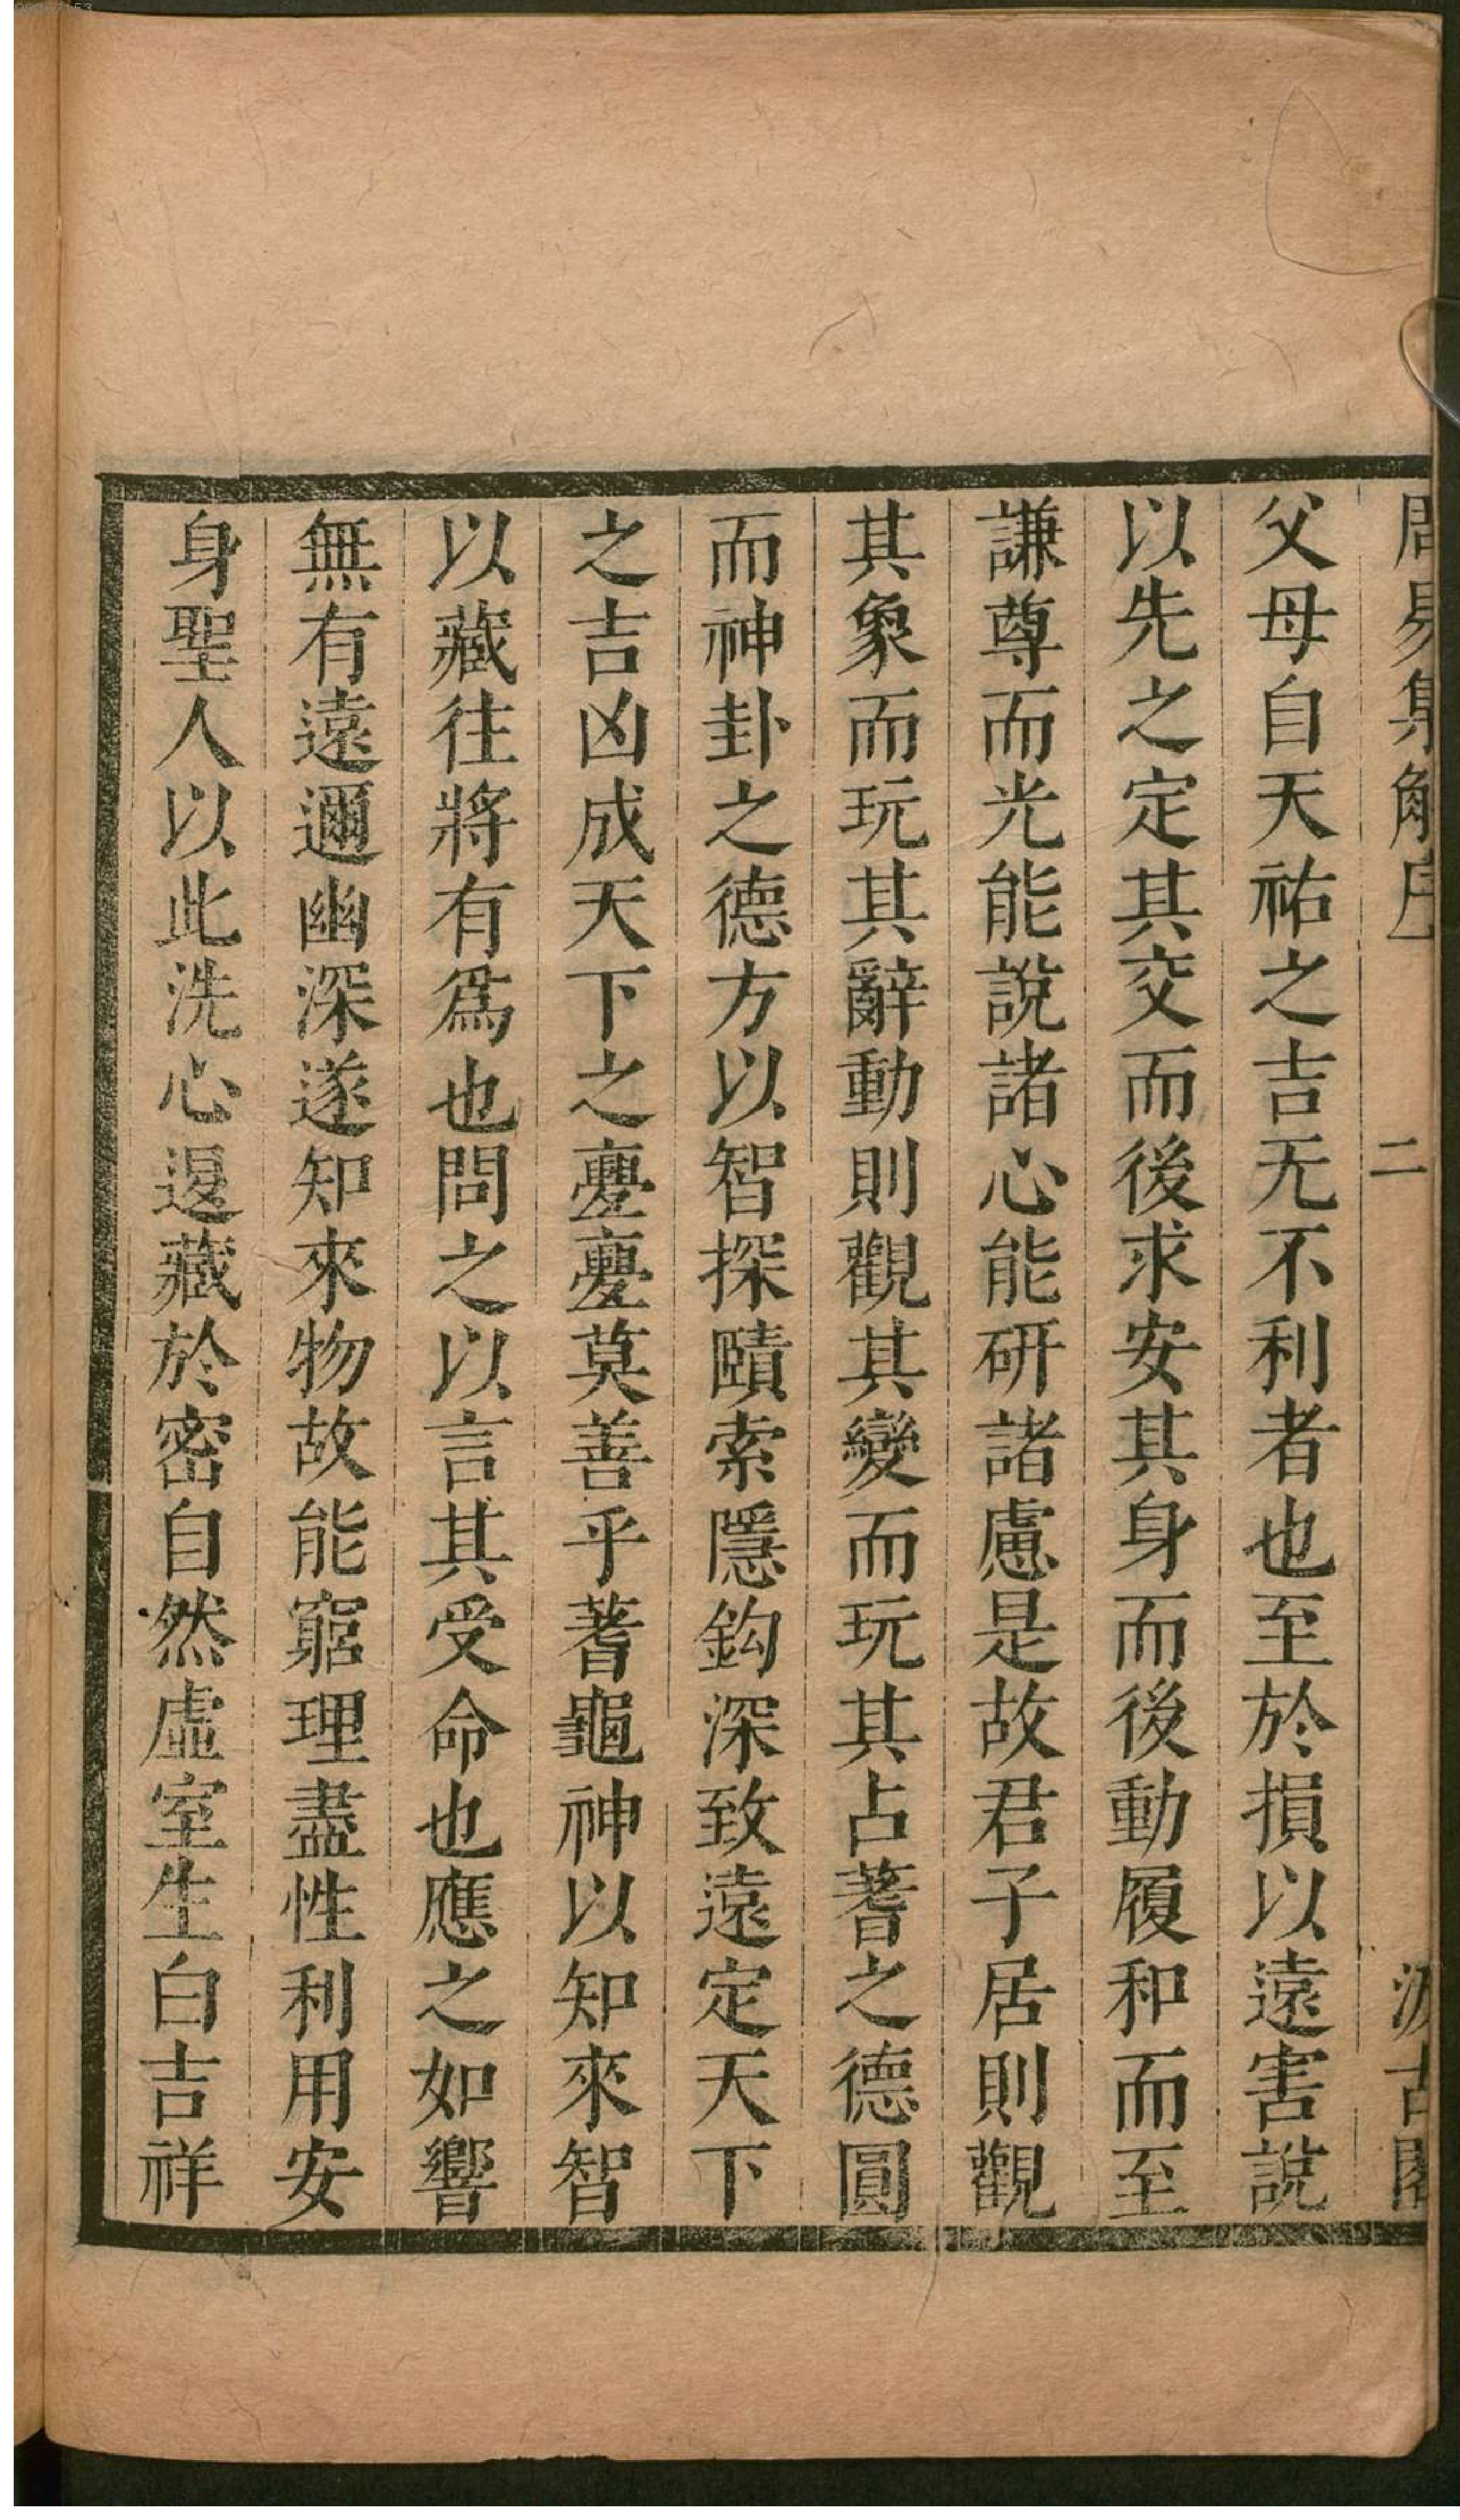 周易集解序
二
汲古閣
父母自天祐之吉无不利者也至於損以遠害說
以先之定其交而後求安其身而後動履和而至
謙尊而光能說諸心能研諸慮是故君子居則觀
其象而玩其辭動則觀其變而玩其占蓍之德圓
而神卦之德方以智探賾索隱鈎深致遠定天下
之吉凶成天下之亹亹莫善乎蓍龜神以知來智
以藏往將有爲也問之以言其受命也應之如響
無有遠邇幽深遂知來物故能窮理盡性利用安
身聖人以此洗心退藏於密自然虛室生白吉祥